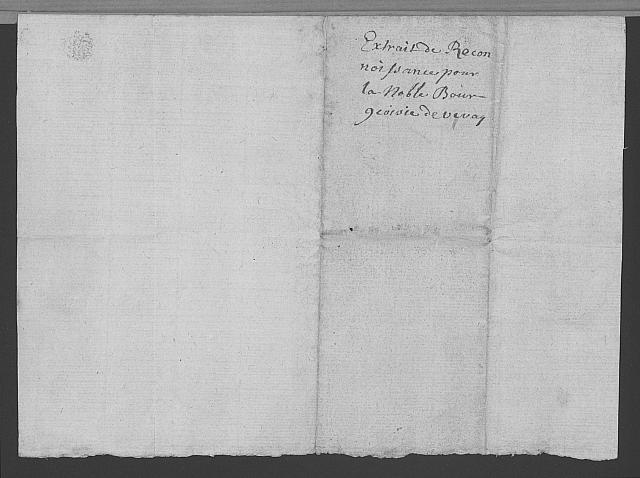 Extrait de Recon
noissance pour
la Noble Bour-
geoisie de Vevay